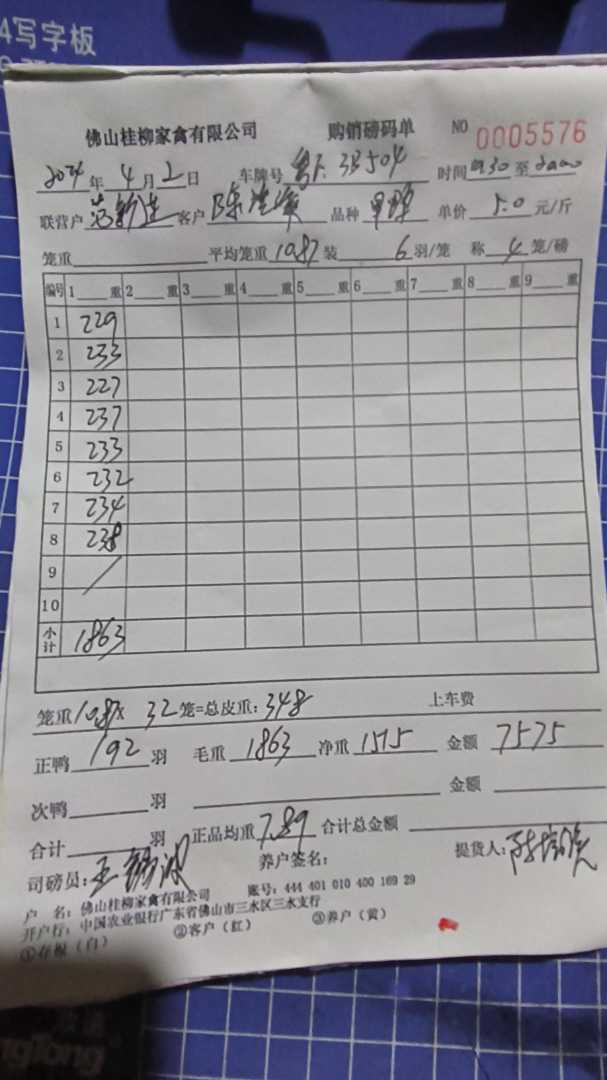 4写字板
佛山桂柳家禽有限公司 购销磅码单 NO 0005576
2024年4月2日 车牌号 粤A 3B504 时间 至
联营户 客户 陈 品种 单价 5.0 元/斤
笼重 平均笼重 10.87 装 6 羽/笼 称 4 笼/磅
编号 1 重 2 重 3 重 4 重 5 重 6 重 7 重 8 重 9 重
1 229
2 233
3 227
4 237
5 233
6 232
7 234
8 238
9 /
10
小计 1863
笼重 10.87 x 32 笼=总皮重: 348 上车费
正鸭 192 羽 毛重 1863 净重 1515 金额 7575
次鸭 羽 金额
合计 羽 正品均重 7.89 合计总金额
司磅员: 王 养户签名: 提货人:
户 名: 佛山桂柳家禽有限公司 账号: 444 401 010 400 169 29
开户行: 中国农业银行广东省佛山市三水区三水支行
①存根（白） ②客户（红） ③养户（黄）
ngTong